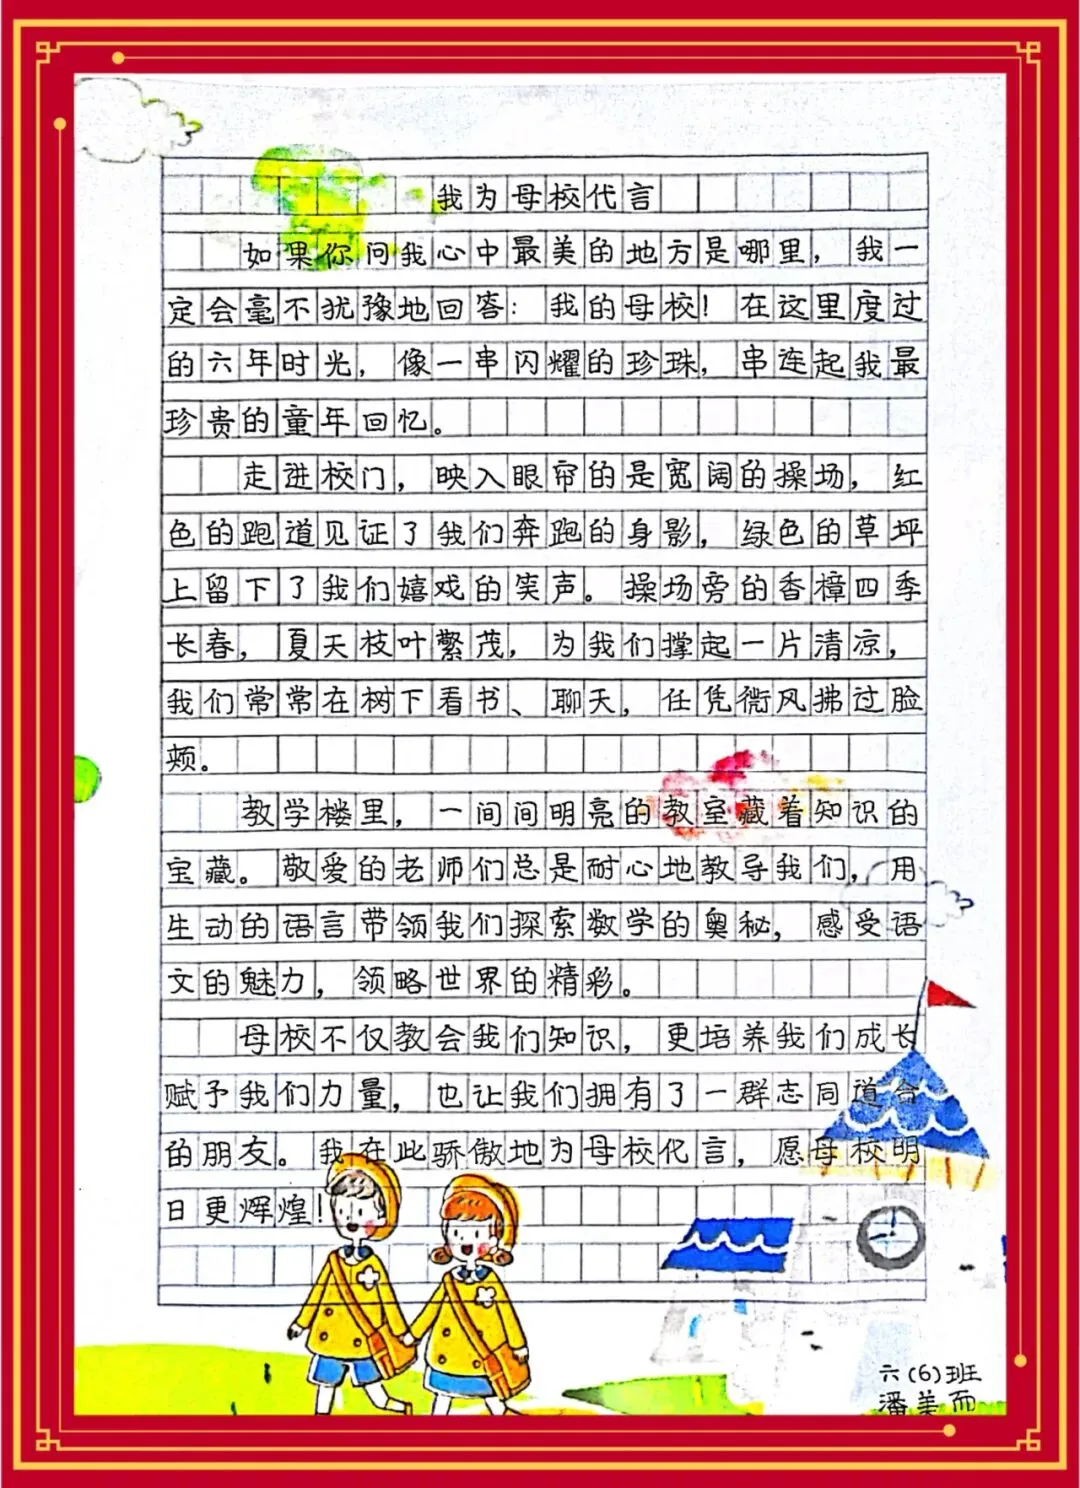 我为母校代言
如果你问我心中最美的地方是哪里，我一
定会毫不犹豫地回答：我的母校！在这里度过
的六年时光，像一串闪耀的珍珠，串连起我最
珍贵的童年回忆。
走进校门，映入眼帘的是宽阔的操场，红
色的跑道见证了我们奔跑的身影，绿色的草坪
上留下了我们嬉戏的笑声。操场旁的香樟四季
长春，夏天枝叶繁茂，为我们撑起一片清凉，
我们常常在树下看书、聊天，任凭微风拂过脸
颊。
教学楼里，一间间明亮的教室藏着知识的
宝藏。敬爱的老师们总是耐心地教导我们，用
生动的语言带领我们探索数学的奥秘，感受语
文的魅力，领略世界的精彩。
母校不仅教会我们知识，更培养我们成长
赋予我们力量，也让我们拥有了一群志同道合
的朋友。我在此骄傲地为母校代言，愿母校明
日更辉煌！
六(6)班
潘美而